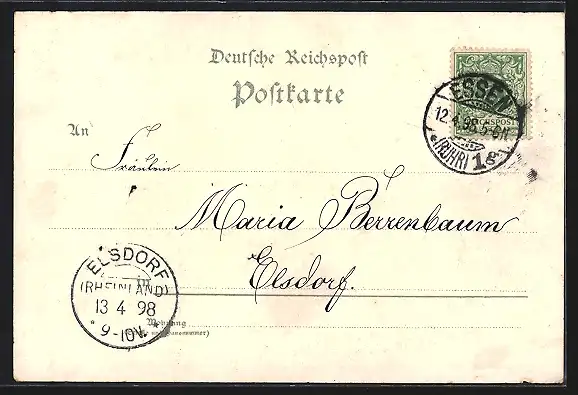 Deutsche Reichspost
Postkarte
ESSEN
12.4.98.5-6N
(RUHR) 1
REICHSPOST
An
Fräulein
Maria Berrenbaum
Elsdorf.
in
ELSDORF
(RHEINLAND)
13 4 98
* 9-10V. *
Wohnung